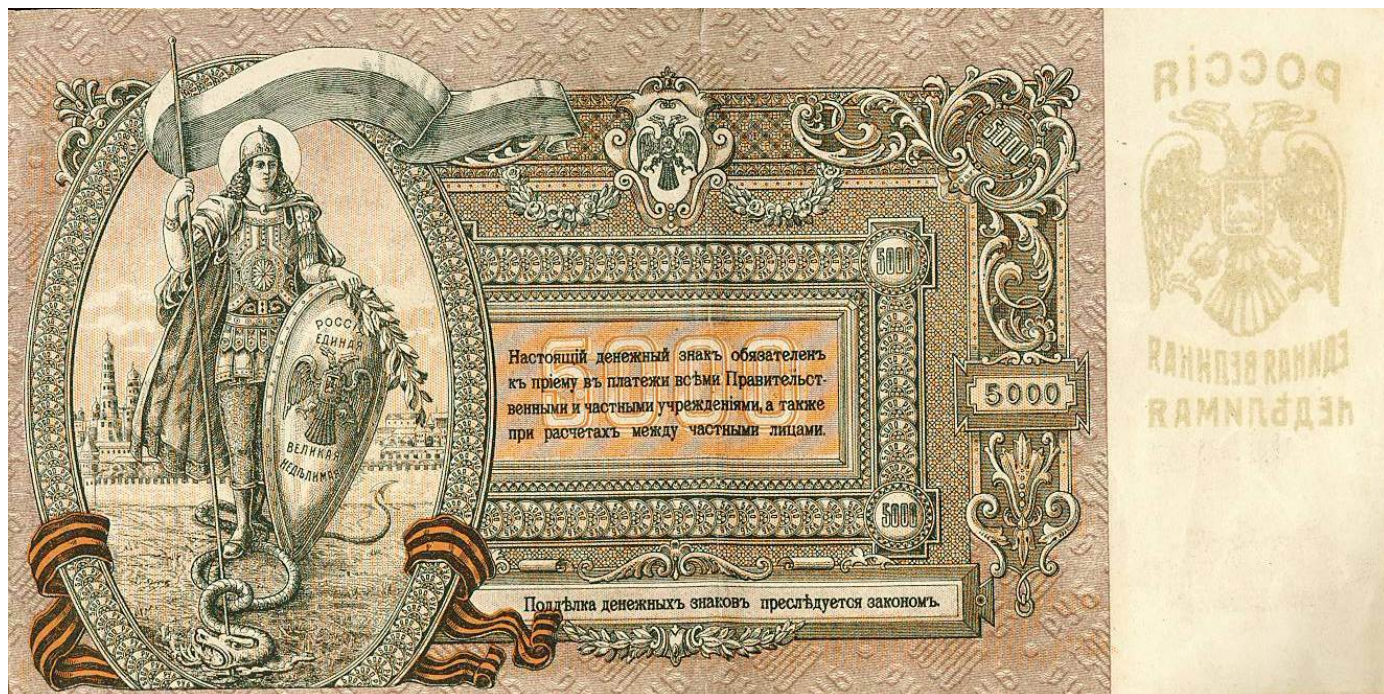 5000
5000
РОССІ
ЕДИНАЯ
ВЕЛИКАЯ
НЕДѢЛИМАЯ
5000
Настоящій денежный знакъ обязателенъ
къ пріему въ платежи всѣми Правительст-
венными и частными учрежденіями, а также
при расчетахъ между частными лицами.
5000
5000
Поддѣлка денежныхъ знаковъ преслѣдуется закономъ.
РОССІЯ
ЕДИНАЯ ВЕЛИКАЯ
НЕДѢЛИМАЯ